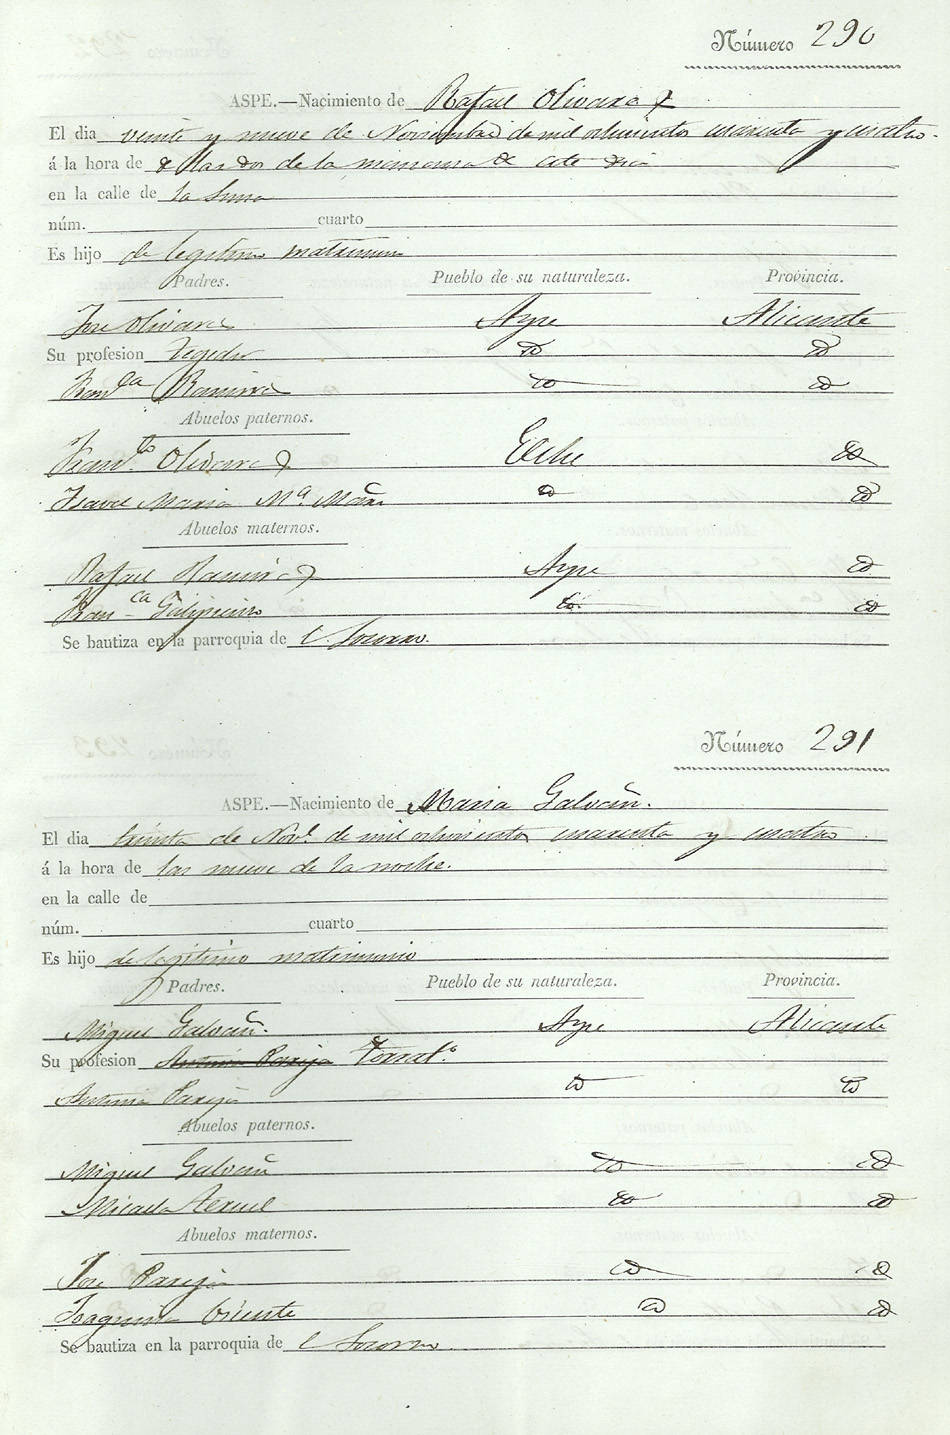 Número 290
ASPE.—Nacimiento de Rafael Olivares
El dia veinte y nueve de Noviembre de mil ochocientos cuarenta y cuatro.
á la hora de las dos de la mañana de este dia
en la calle de la
núm. cuarto
Es hijo de legitimo matrimonio
Padres. Pueblo de su naturaleza. Provincia.
Jose Olivares Aspe Alicante
Su profesion Tegedor Yd Yd
Fran.ca Ramires Yd Yd
Abuelos paternos.
Fran.co Olivares Elche Yd
Isavel Maria Mª Yd Yd
Abuelos maternos.
Rafael Ramires Aspe Yd
Fran.ca Yd Yd
Se bautiza en la parroquia de l Socorro.
Número 291
ASPE.—Nacimiento de Maria Galvañ.
El dia treinta de Nov.e de mil ochocientos cuarenta y cuatro
á la hora de las nueve de la noche.
en la calle de
núm. cuarto
Es hijo de legitimo matrimonio
Padres. Pueblo de su naturaleza. Provincia.
Miguel Galvañ. Aspe Alicante
Su profesion Antonia Pareja Jornal.o
Antonia Pareja Yd Yd
Abuelos paternos.
Miguel Galvañ Yd Yd
Micaela Teruel Yd Yd
Abuelos maternos.
Jose Pareja Yd Yd
Joaquina Vicente Yd Yd
Se bautiza en la parroquia de l Socorro